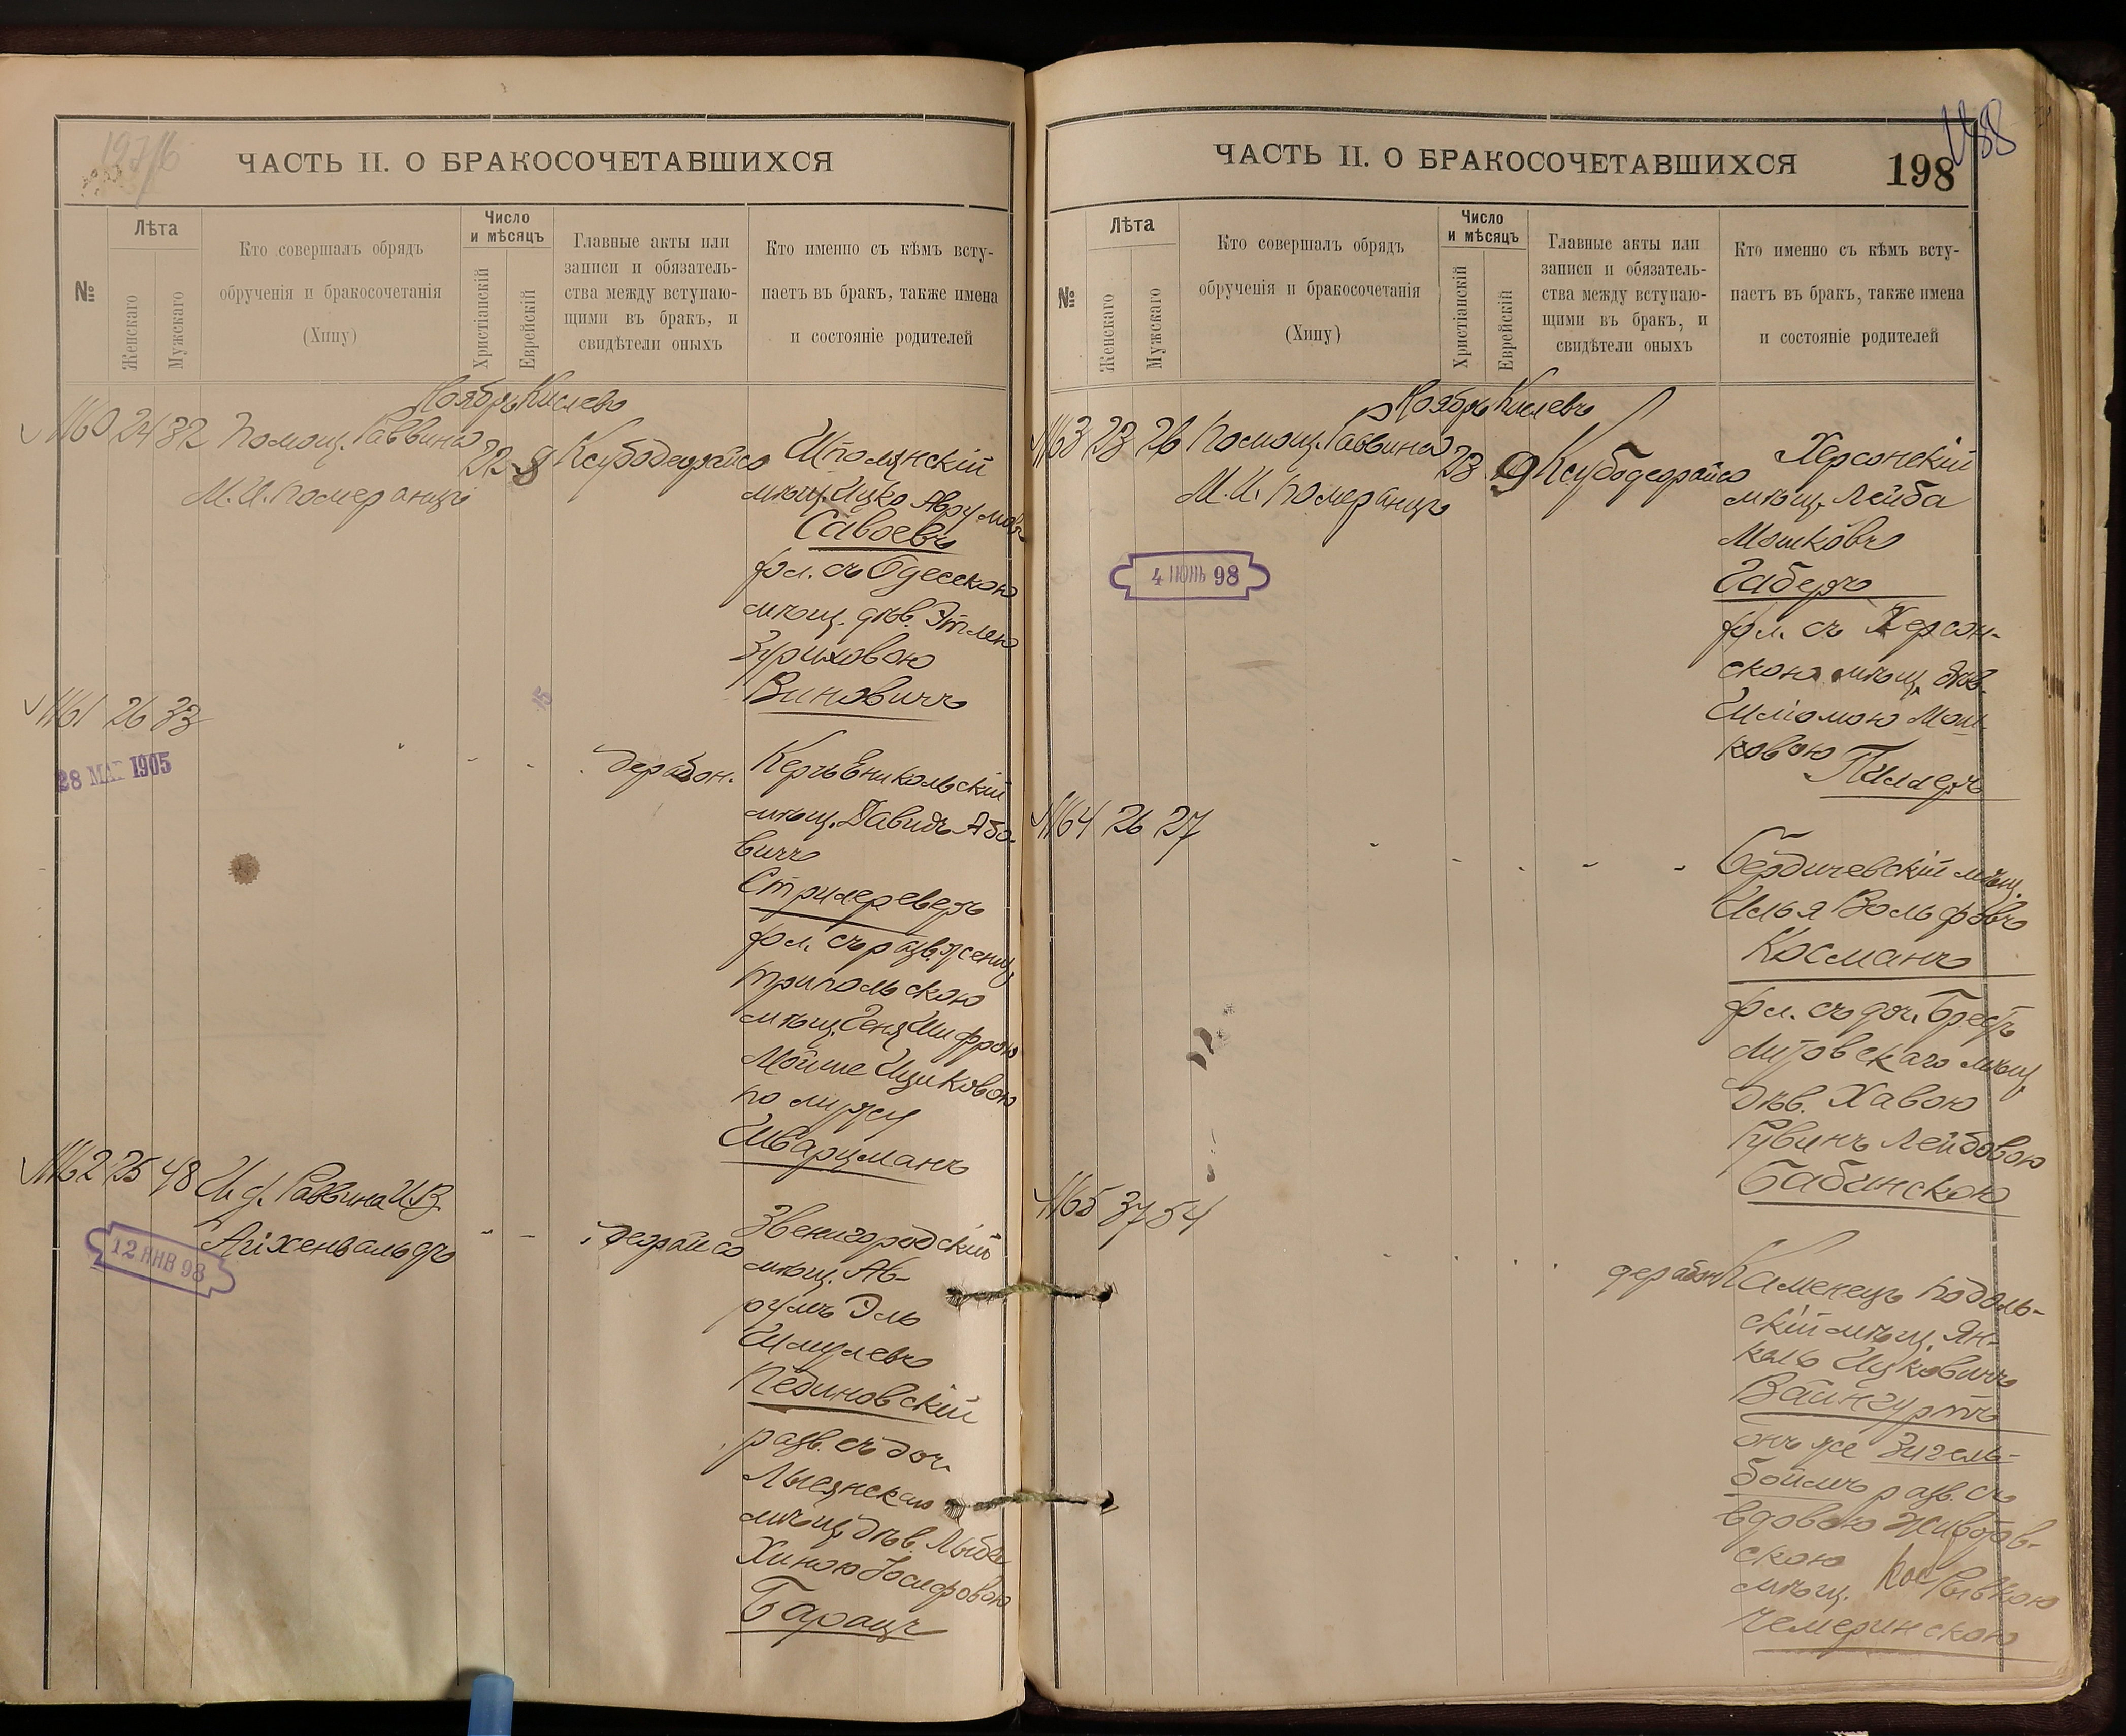 ЧАСТЬ II. О БРАКОСОЧЕТАВШИХСЯ
№
Лѣта
Женскаго
Мужскаго
Кто совершалъ обрядъ
обрученія и бракосочетанія
(Хипу)
Число
и мѣсяцъ
Христіанскій
Еврейскій
Главные акты или
записи и обязатель-
ства между вступаю-
щими въ бракъ, и
свидѣтели оныхъ
Кто именно съ кѣмъ всту-
паетъ въ бракъ, также имена
и состояніе родителей
Ноябрь Кислевъ
1160 24 32 Помощ. Раввина 22 9
М. И. Померанцъ
Шполянскій
мѣщ. Ицко Аврумовъ
Савоевъ
хол. съ Одесскою
мѣщ. дѣв. Этлею
Зуриховою
Виновичъ
1161 26 33
28 МАР 1905
дерабон. Керчь Еникольскій
мѣщ. Давидъ Або-
вичъ
хол. съ разв. женщ.
Трипольскою
мѣщ. Геня Шифрою
Мойше Ициковою
по мужу
Шварцманъ
1162 25 48 И. д. Раввина И. В.
Айхенвальдъ
12 ЯНВ 98
Звенигородскій
мѣщ. Ав-
румъ Эль
Шмулевъ
Пединовскій
разв. съ доч.
Лысянскаго
мѣщ. дѣв.
Хиною Іосифовою
Баращъ
ЧАСТЬ II. О БРАКОСОЧЕТАВШИХСЯ
198
№
Лѣта
Женскаго
Мужскаго
Кто совершалъ обрядъ
обрученія и бракосочетанія
(Хипу)
Число
и мѣсяцъ
Христіанскій
Еврейскій
Главные акты или
записи и обязатель-
ства между вступаю-
щими въ бракъ, и
свидѣтели оныхъ
Кто именно съ кѣмъ всту-
паетъ въ бракъ, также имена
и состояніе родителей
Ноябрь Кислевъ
1163 23 26 Помощ. Раввина 23 9
М. И. Померанцъ
4 ІЮНЬ 98
Херсонскій
мѣщ. Лейба
Мошковъ
Габеръ
хол. съ Херсон-
скою мѣщ. дѣв.
Шліомою Мош-
ковою
Пиллеръ
1164 26 27
Бердичевскій мѣщ.
Илья Вольфовъ
Косманъ
хол. съ доч. Брестъ
Литовскаго мѣщ.
дѣв. Хавою
Рувинъ Лейбовою
Бабинскою
1165 37 54
дерабон Каменецъ Подоль-
скій мѣщ. Ян-
кель Ицковичъ
Вайнгуртъ
онъ же Зигель-
боймъ разв. съ
вдовою Животов-
скою
мѣщ. Рывкою
Чемеринскою